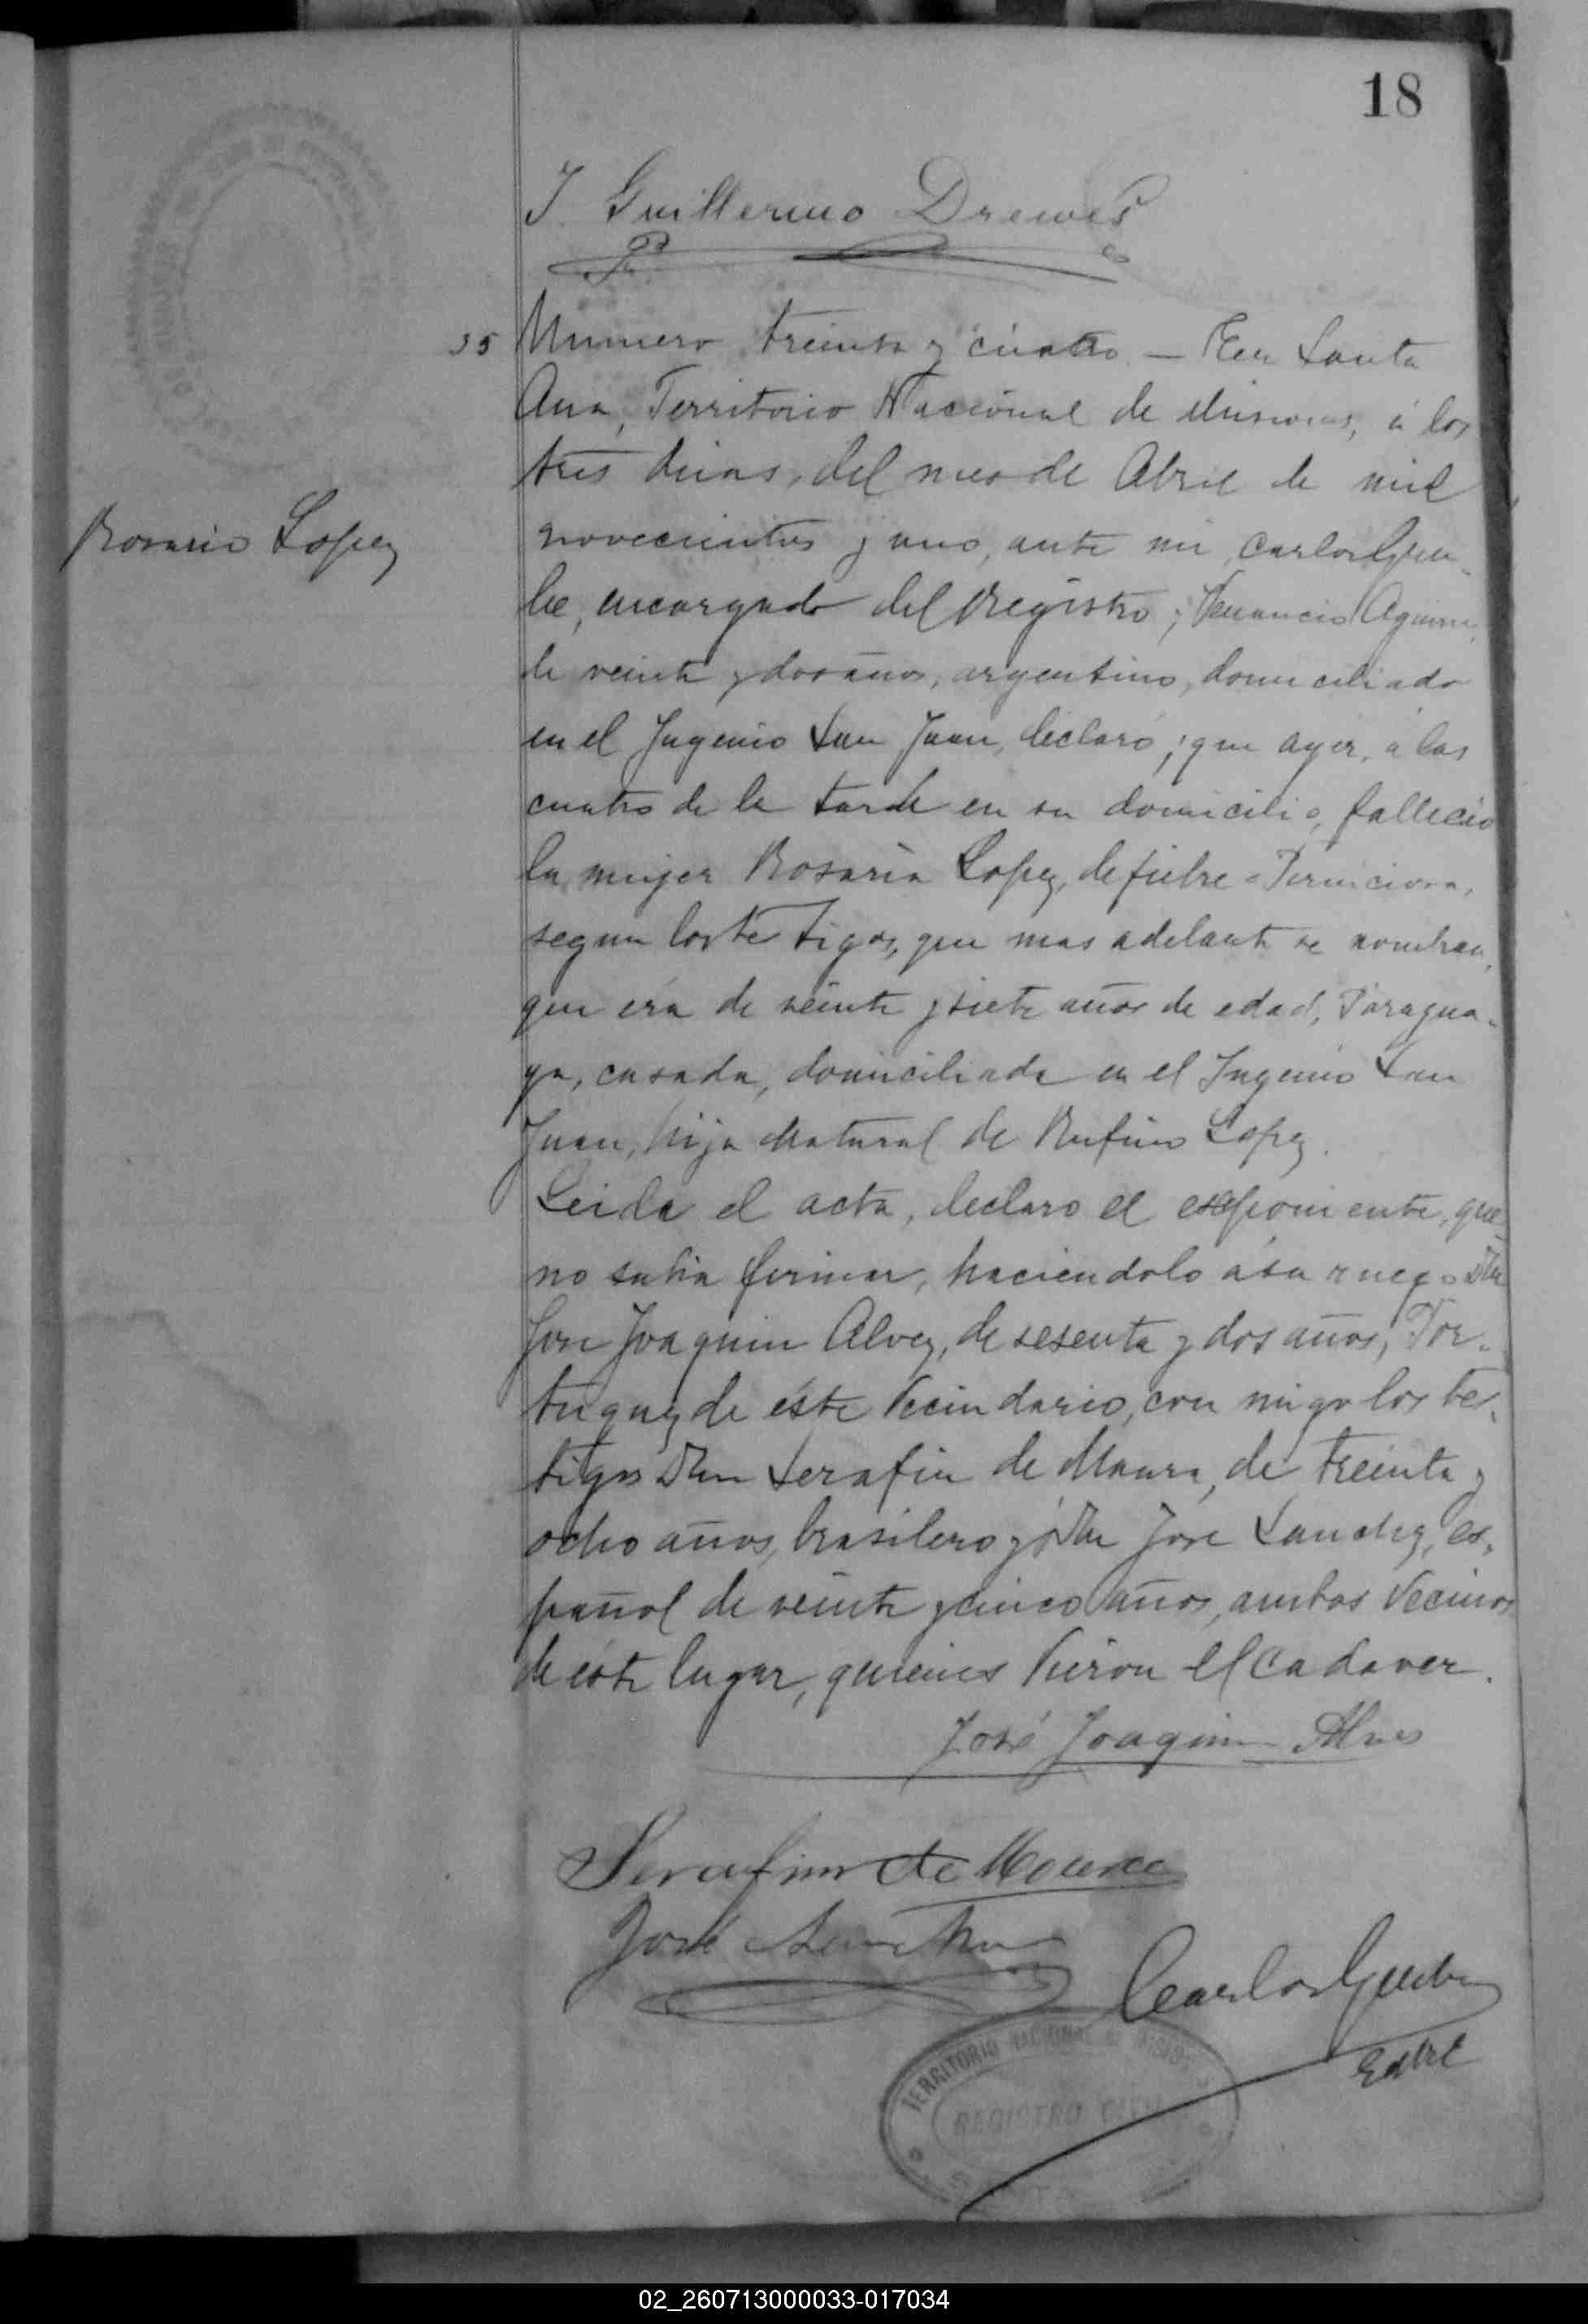 18
J. Guillermo Drewes
35 Numero treinta y cuatro. — En Santa
Ana, Territorio Nacional de Misiones, á los
tres dias, del mes de Abril de mil
Rosario Lopez
novecientos y uno, ante mi, Carlos Gru-
be, encargado del Registro; Venancio Aguirre,
de veinte y dos años, argentino, domiciliado
en el Ingenio San Juan, declaró; que ayer, a las
cuatro de la tarde en su domicilio, falleció
la mujer Rosaria Lopez, de fiebre-Perniciosa,
segun los testigos, que mas adelante se nombran,
que era de veinte y siete años de edad, Paragua-
ya, casada, domiciliada en el Ingenio San
Juan, hija Natural de Rufino Lopez.
Leida el acta, declaro el exeponiente, que
no sabia firmar, haciendolo á su ruego Don
Jose Joaquin Alvez, de sesenta y dos años, Por-
tuguez, de éste Vecindario, con migo los tes-
tigos Don Serafin de Maura, de treinta y
ocho años, brasilero y Don Jose Sanchez, es-
pañol de veinte y cinco años, ambos Vecinos
de éste lugar, quienes Vieron el cadaver.
José Joaquim Alves
Serafim de Moura
José
Carlos Grube
TERRITORIO NACIONAL DE MISIONES
REGISTRO CIVIL
02_260713000033-017034